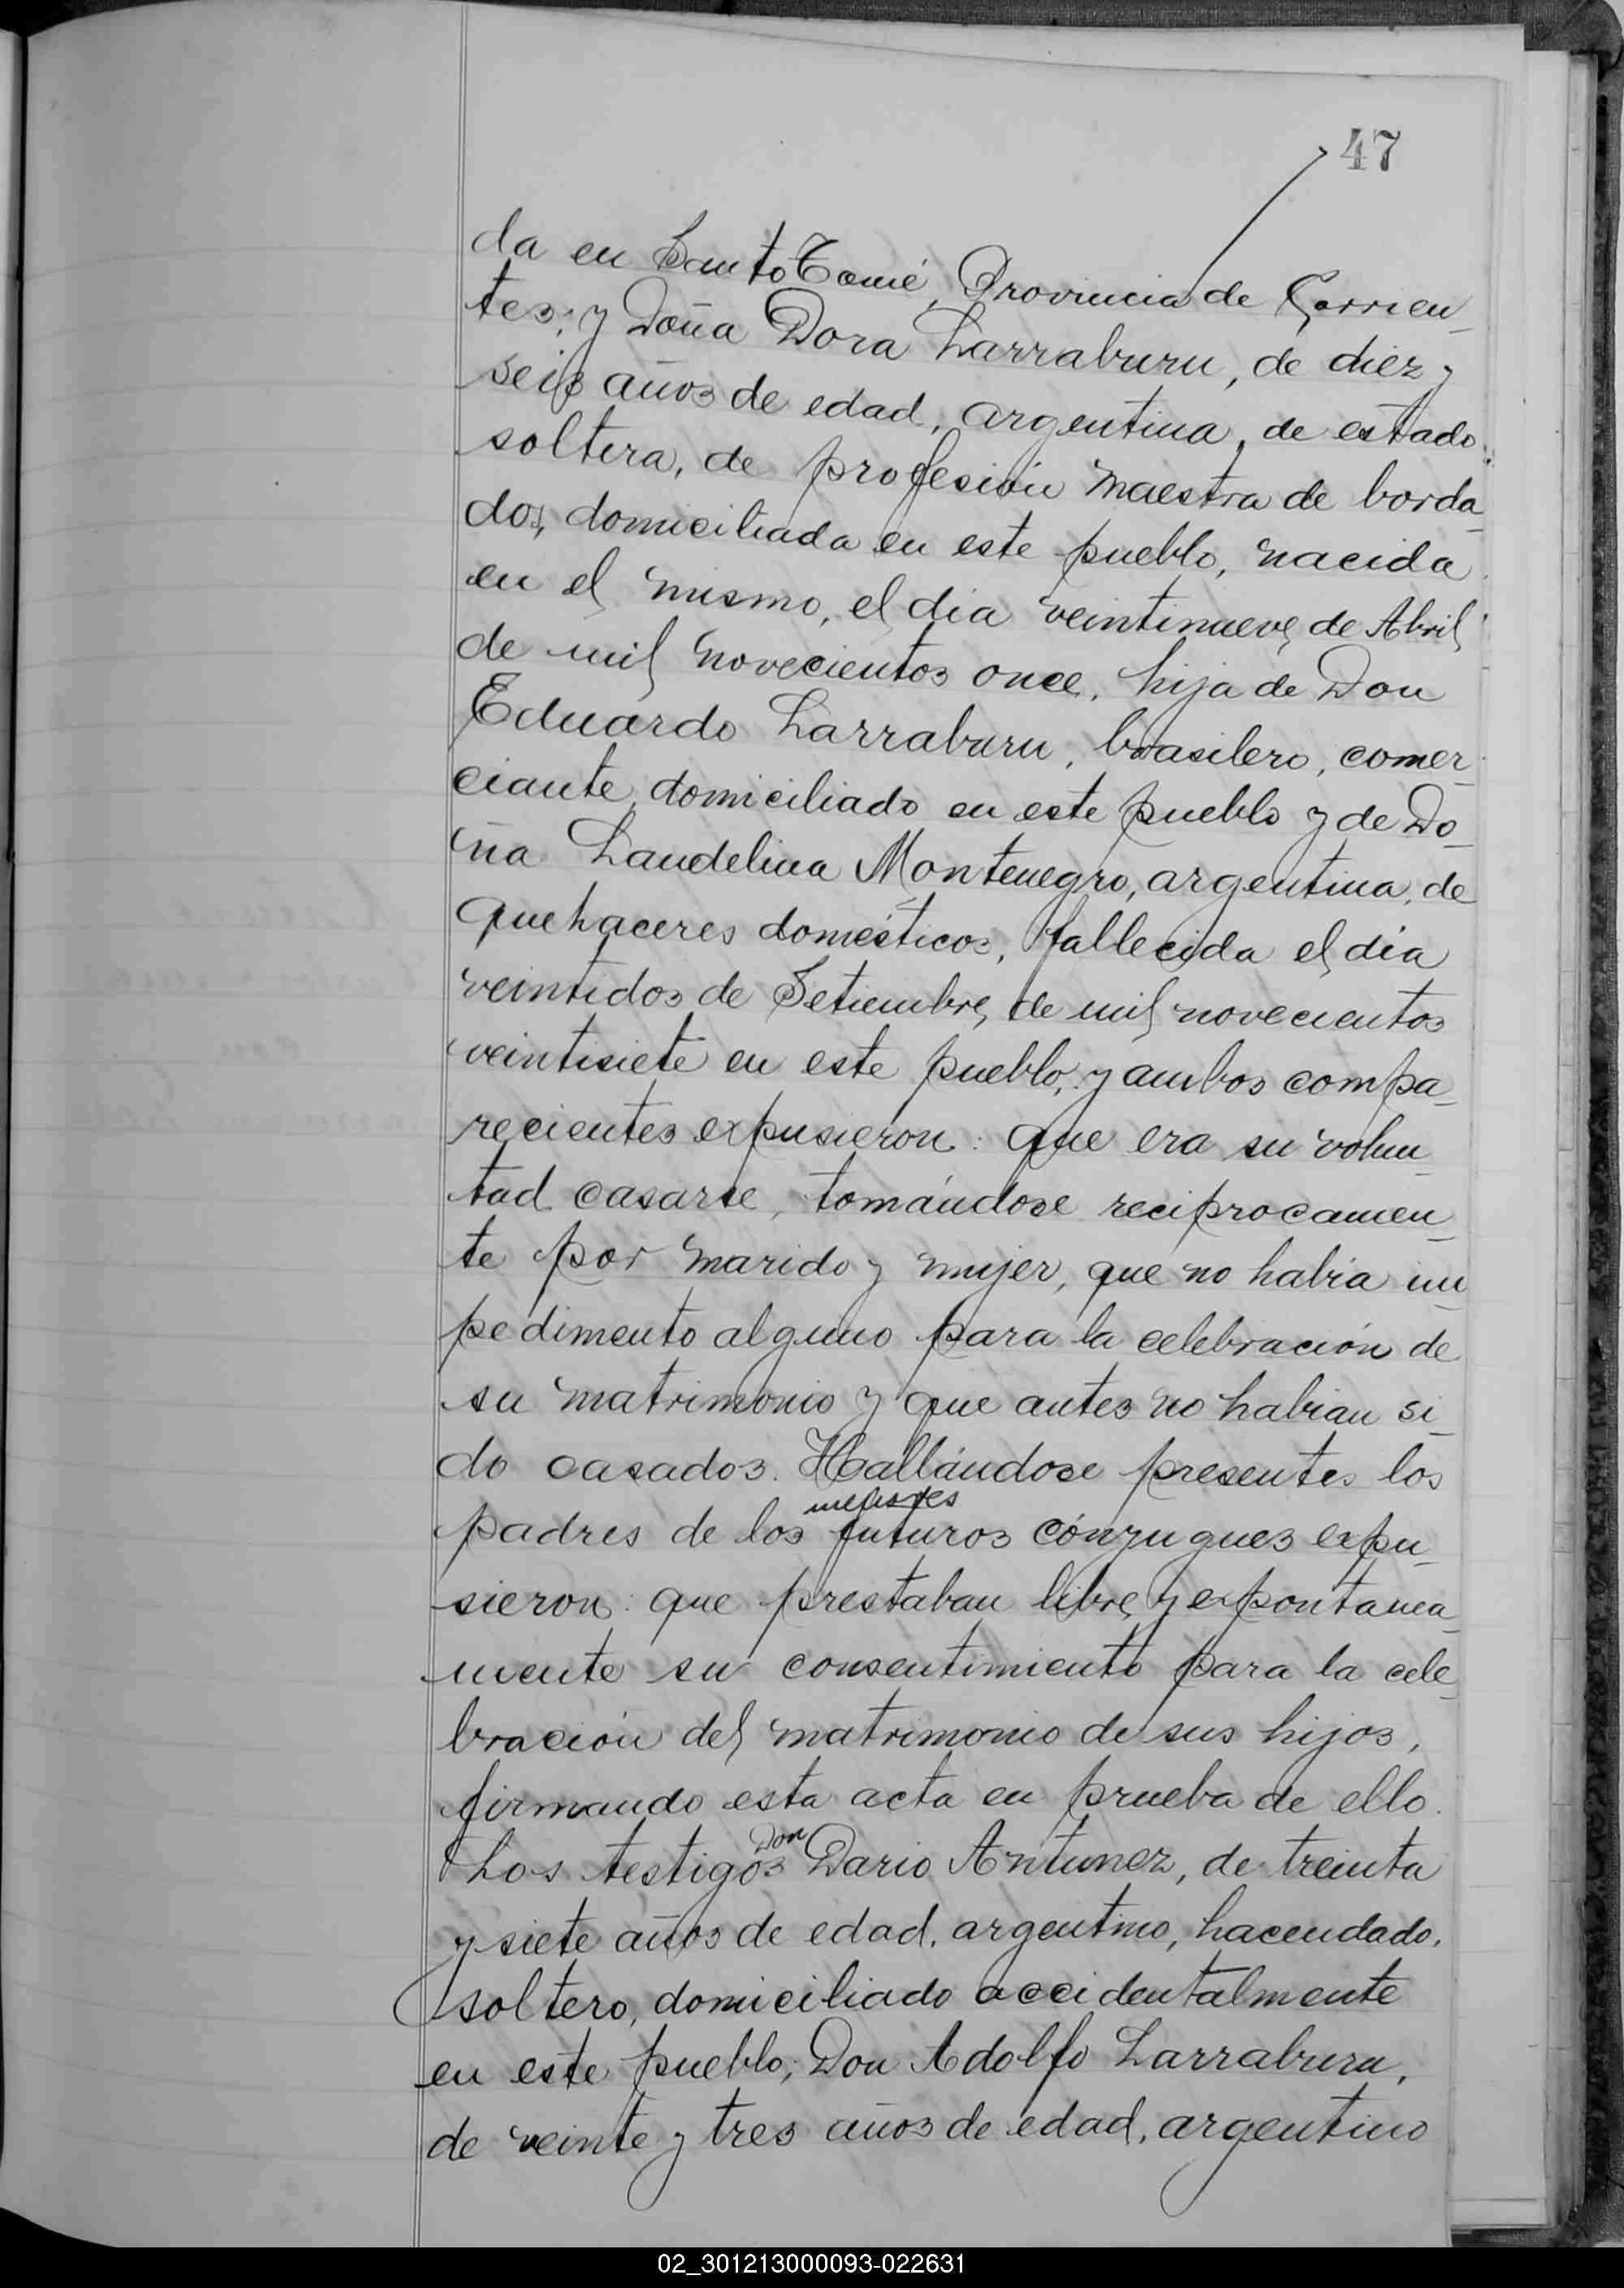 47
da en Santo Tomé, Provincia de Corrien_
tes; y Doña Dora Larraburu, de diez y
seis años de edad, argentina, de estado
soltera, de profesión maestra de borda_
dos, domiciliada en este pueblo, nacida
en el mismo, el dia veintinueve de Abril
de mil novecientos once, hija de Don
Eduardo Larraburu, brasilero, comer_
ciante, domiciliado en este pueblo y de Do_
ña Laudelina Montenegro, argentina, de
quehaceres domésticos, fallecida el dia
veintidos de Setiembre de mil novecientos
veintisiete en este pueblo, y ambos compa_
recientes expusieron: que era su volun_
tad casarse, tomándose reciprocamen_
te por marido y mujer, que no habia im_
pedimento alguno para la celebración de
su matrimonio y que antes no habian si_
do casados. Hallándose presentes los
padres de los futuros cónyugues expu_
sieron: que prestaban libre y expontanea_
mente su consentimiento para la cele_
bración del matrimonio de sus hijos,
firmando esta acta en prueba de ello.
Los testigos Don Dario Antunez, de treinta
y siete años de edad, argentino, hacendado,
soltero, domiciliado accidentalmente
en este pueblo; Don Adolfo Larraburu,
de veinte y tres años de edad, argentino
02_301213000093-022631